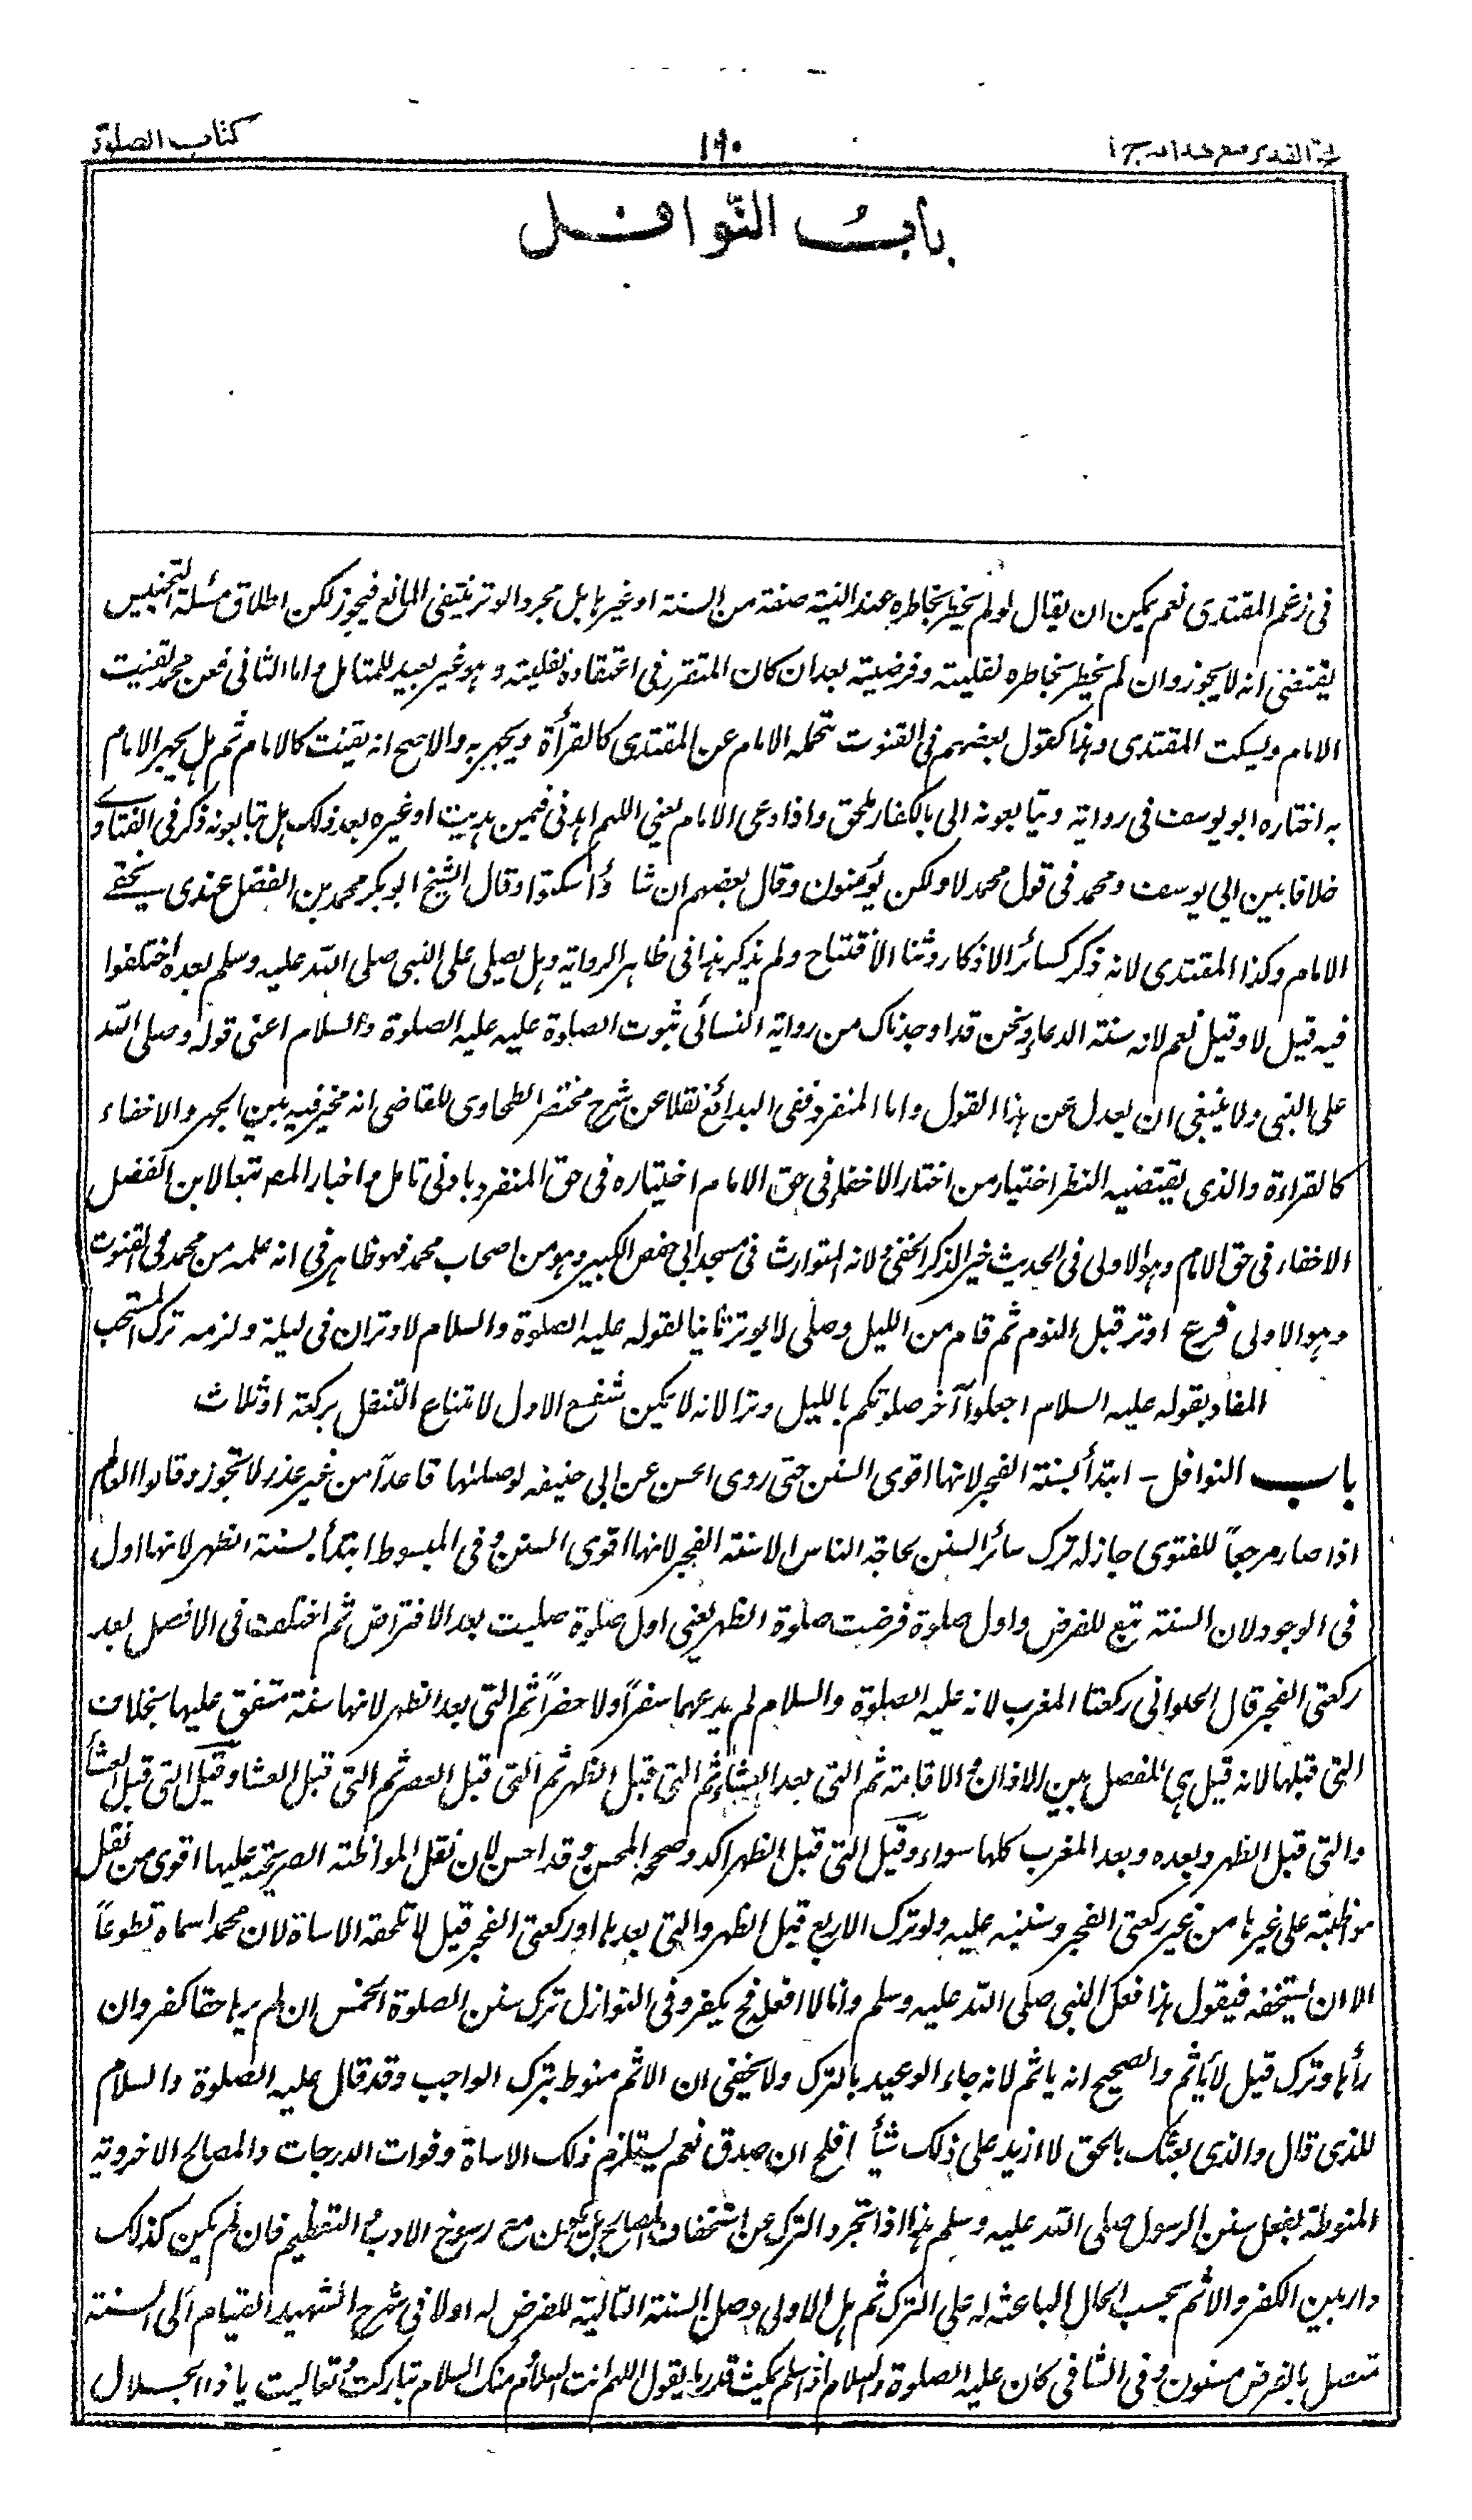 فتح القدير مع هدايه ج ا
١٩٠
كتاب الصلوة
باب النوافل
فى زعم المقتدى نعم يمكن ان يقال لو لم يخطر بخاطره عند النية صفته من السنة او غيرها بل مجرد الوتر ينتفى المانع فيجوز لكن اطلاق مسئلة التجنيس
يقتضى انه لا يجوز وان لم يخطر بخاطره نفليته وفرضيته بعد ان كان المتقرر فى اعتقاده نفليته وهو غير بعيد للمتامل واما الثانى فعن محمد يقنت
الامام ويسكت المقتدى وهذا كقول بعضهم فى القنوت تحمله الامام عن المقتدى كالقرأة ويجهر به والاصح انه يقنت كالامام ثم هل يجهر الامام
به اختاره ابو يوسف فى رواية ويتابعونه الى بالكفار ملحق واذا دعى الامام يعنى اللهم اهدنى فيمن هديت او غيره بعد ذلك هل يتابعونه ذكر فى الفتاوے
خلافا بين ابى يوسف ومحمد فى قول محمد لا ولكن يؤمنون وقال بعضهم ان شاؤا سكتوا وقال الشيخ ابو بكر محمد بن الفضل عندى يخفے
الامام وكذا المقتدى لانه ذكر كسائر الاذكار وثنا الافتتاح ولم يذكر هذا فى ظاهر الرواية وهل يصلى على النبى صلى الله عليه وسلم بعده اختلفوا
فيه قيل لا وقيل نعم لانه سنة الدعاء ونحن قد اوجدناك من رواية النسائى ثبوت الصلوة عليه عليه الصلوة والسلام اعنى قوله وصلى الله
على النبى ولا ينبغى ان يعدل عن هذا القول واما المنفرد ففى البدائع نقلا عن شرح مختصر الطحاوى للقاضى انه مخير فيه بين الجهر والاخفاء
كالقراءة والذى يقتضيه النظر اختيار من اختار الاخفاء فى حق الامام اختياره فى حق المنفرد بادنى تامل واختار المص تبعا لابن الفضل
الاخفاء فى حق الامام وهو الاولى فى الحديث خير الذكر الخفى ولانه المتوارث فى مسجد ابى حفص الكبير وهو من اصحاب محمد فهو ظاهر فى انه علمه من محمد فى القنوت
وهو الاولى فرع اوتر قبل النوم ثم قام من الليل وصلى لا يوتر ثانيا لقوله عليه الصلوة والسلام لا وتران فى ليلة ولزمه ترك المستحب
المفاد بقوله عليه السلام اجعلوا آخر صلوتكم بالليل وترا لانه لا يمكن شفع الاول لامتناع التنفل بركعة او ثلاث
باب النوافل – ابتدأ بسنة الفجر لانها اقوى السنن حتى روى الحسن عن ابى حنيفه لو صلىها قاعداً من غير عذر لا تجوز وقالوا العالم
اذا صار مرجعاً للفتوى جاز له ترك سائر السنن لحاجة الناس الا سنة الفجر لانها اقوى السنن وفى المبسوط ابتدأ بسنة الظهر لانها اول
فى الوجود لان السنة تبع للفرض واول صلوة فرضت صلوة الظهر يعنى اول صلوة صليت بعد الافتراض ثم اختلف فى الافضل بعد
ركعتى الفجر قال الحلوانى ركعتا المغرب لانه عليه الصلوة والسلام لم يدعهما سفراً ولا حضراً ثم التى بعد الظهر لانها سنة متفق عليها بخلاف
التى قبلها لانه قيل هى للفصل بين الاذان والاقامة ثم التى بعد العشاء ثم التى قبل الظهر ثم التى قبل العصر ثم التى قبل العشا وقيل التى قبل العشأ
والتى قبل الظهر وبعده وبعد المغرب كلها سواء وقيل التى قبل الظهر اكد وصححه المحسن وقد احسن لان نقل المواظبة الصريحة عليها اقوى من نقل
مواظبته على غيرها من غير ركعتى الفجر وسنبينه عليه ولو ترك الاربع قبل الظهر والتى بعدها او ركعتى الفجر قيل لا تلحقه الاساة لان محمدا سماه تطوعاً
الا ان يستخفه فيقول هذا فعل النبى صلى الله عليه وسلم وانا لا افعله فح يكفر وفى النوازل ترك سنن الصلوة الخمس ان لم يرها حقا كفر وان
رأها وترك قيل لا يأثم والصحيح انه ياثم لانه جاء الوعيد بالترك ولا يخفى ان الاثم منوط بترك الواجب وقد قال عليه الصلوة والسلام
للذى قال والذى بعثك بالحق لا ازيد على ذلك شيأ افلح ان صدق نعم يستلزم ذلك الاساة وفوات الدرجات والمصالح الاخروية
المنوطة بفعل سنن الرسول صلى الله عليه وسلم هذا اذا تجرد الترك عن استخفاف بل يكون مع رسوخ الادب والتعظيم فان لم يكن كذلك
دار بين الكفر والاثم بحسب الحال الباعثة له على الترك ثم هل الاولى وصل السنة التالية للفرض له اولا فى شرح الشهيد القيام الى السنة
متصل بالفرض مسنون وفى الشافى كان عليه الصلوة والسلام اذا سلم يمكث قدر ما يقول اللهم انت السلام ومنك السلام تباركت وتعاليت يا ذا الجلال